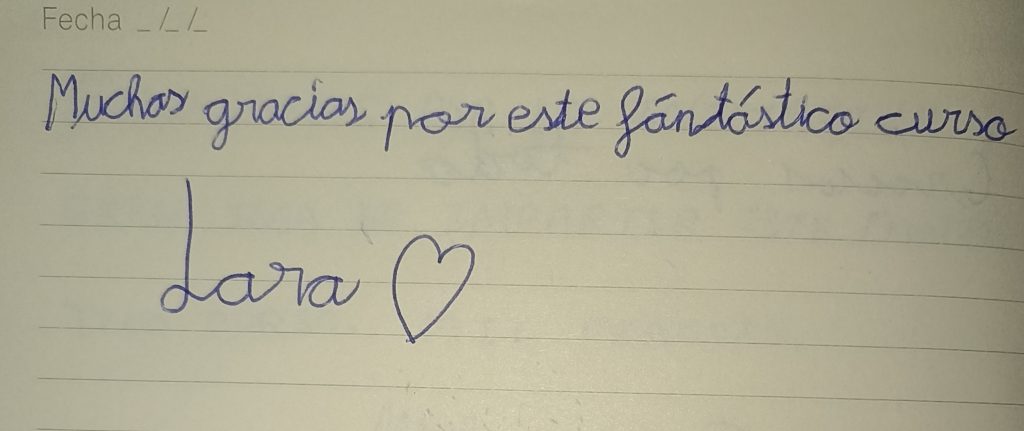 Fecha _/_/_
Muchas gracias por este fántástico curso
Lara ♡